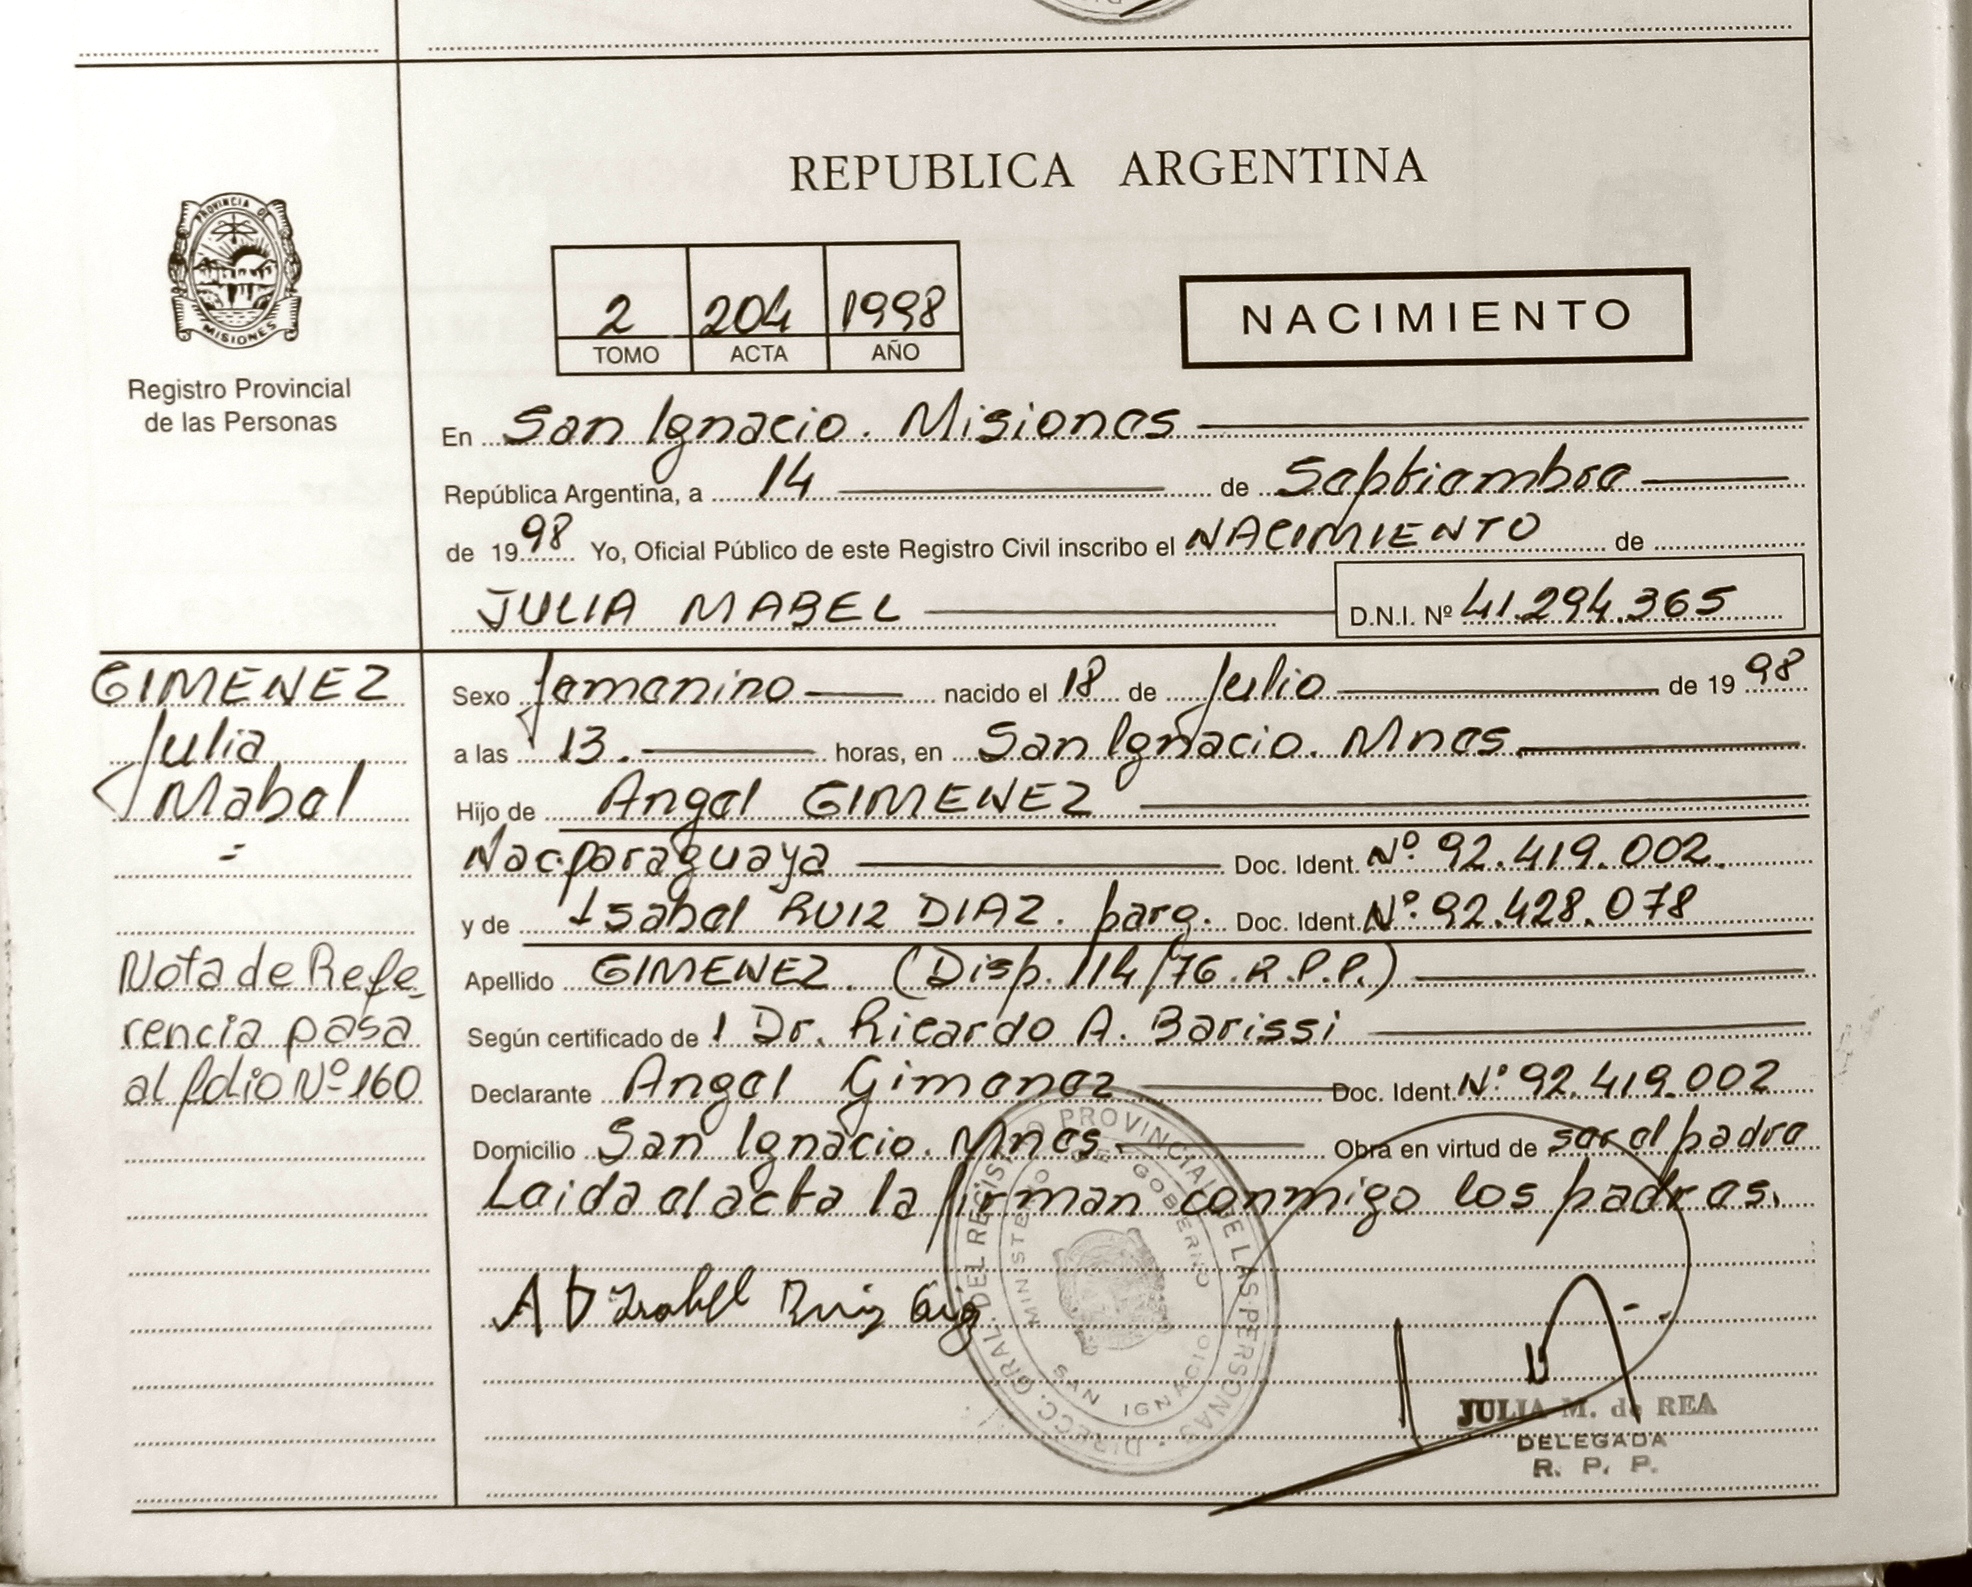 REPUBLICA ARGENTINA
PROVINCIA DE
MISIONES
Registro Provincial
de las Personas
2 204 1998
TOMO ACTA AÑO
NACIMIENTO
En San Ignacio. Misiones
República Argentina, a 14 de Septiembre
de 1998 Yo, Oficial Público de este Registro Civil inscribo el NACIMIENTO de
JULIA MABEL D.N.I. Nº 41.294.365
GIMENEZ
Julia
Mabel
=
Nota de Refe-
rencia pasa
al folio Nº 160
Sexo femenino nacido el 18 de Julio de 1998
a las 13. horas, en San Ignacio. Mnes.
Hijo de Angel GIMENEZ
Nac. paraguaya Doc. Ident. Nº. 92.419.002.
y de Isabel RUIZ DIAZ. parg. Doc. Ident. Nº. 92.428.078
Apellido GIMENEZ. (Disp. 114/76.R.P.P.)
Según certificado de 1 Dr. Ricardo A. Barissi
Declarante Angel Gimenez Doc. Ident. Nº 92.419.002
Domicilio San Ignacio. Mnes. Obra en virtud de ser el padre
Leida el acta la firman conmigo los padres.
DIRECC. GRAL. DEL REGISTRO PROVINCIAL DE LAS PERSONAS
MINISTERIO DE GOBIERNO
SAN IGNACIO
JULIA M. de REA
DELEGADA
R. P. P.